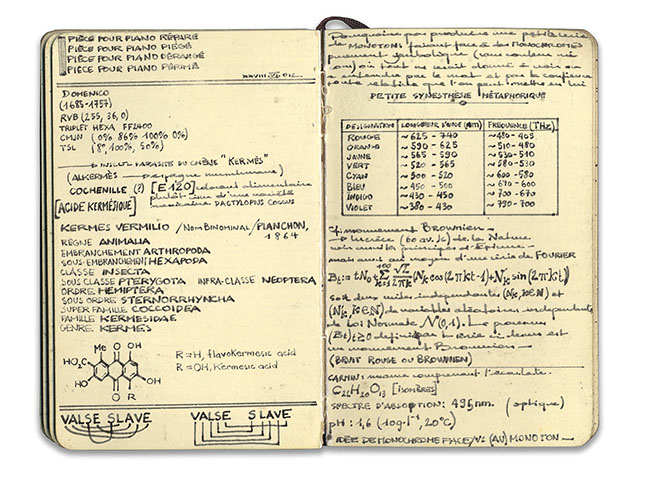 PIÈCE POUR PIANO RÉPARÉ
PIÈCE POUR PIANO PIÉGÉ
PIÈCE POUR PIANO DÉRANGÉ
PIÈCE POUR PIANO PÉRIMÉ
DOMENICO
(1685-1757)
RVB (255, 36, 0)
TRIPLET HEXA FF2400
CMJN (0% 86% 100% 0%)
TSL (8°, 100%, 50%)
INSECTE PARASITE DU CHÊNE "KERMÈS"
(ALKERMÈS
COCHENILLE (?) [E120] colorant alimentaire
DACTYLOPIUS COCCUS
[ACIDE KERMÉSIQUE]
KERMES VERMILIO / NOM BINOMINAL / PLANCHON, 1864
RÈGNE ANIMALIA
EMBRANCHEMENT ARTHROPODA
SOUS-EMBRANCHEMENT HEXAPODA
CLASSE INSECTA
SOUS CLASSE PTERYGOTA INFRA-CLASSE NEOPTERA
ORDRE HEMIPTERA
SOUS ORDRE STERNORRHYNCHA
SUPER FAMILLE COCCOIDEA
FAMILLE KERMESIDAE
GENRE KERMES
Me O OH
HO₂C
HO OH
O R
R = H, flavokermesic acid
R = OH, Kermesic acid
VALSE SLAVE VALSE SLAVE
Pourquoi ne pas produire une petite série
de MONOTONS faisant face à des MONOCHROMES
PETITE SYNESTHÉSIE MÉTAPHORIQUE
DÉSIGNATION LONGUEUR D'ONDE (nm) FRÉQUENCE (THz)
ROUGE ~ 625 - 740 ~ 480-405
ORANGE ~ 590 - 625 ~ 510-480
JAUNE ~ 565 - 590 ~ 530-510
VERT ~ 520 - 565 ~ 580-530
CYAN ~ 500 - 520 ~ 600-580
BLEU ~ 450 - 500 ~ 670-600
INDIGO ~ 430 - 450 ~ 700-670
VIOLET ~ 380 - 430 ~ 790-700
Cf. mouvement Brownien
→ Lucrèce (60 av. JC) de la Nature
mais aussi au moyen d'une série de FOURIER
soit deux suites indépendantes (Nk, k∈N) et
(N'k, k∈N) de variables aléatoires indépendantes
de loi Normale N(0,1). Le processus
(Bt) t≥0 défini par la série ci-dessus est
un mouvement Brownien
(BRUIT ROUGE OU BROWNIEN)
CARMIN : nuance comprenant l'écarlate.
C₂₂H₂₀O₁₃ [ISOMÈRES]
SPECTRE D'ABSOPTION : 495nm. (optique)
pH : 1,6 (10g·l⁻¹, 20°C)
IDÉE DE MONOCHROME FACE/VS (AU) MONOTON